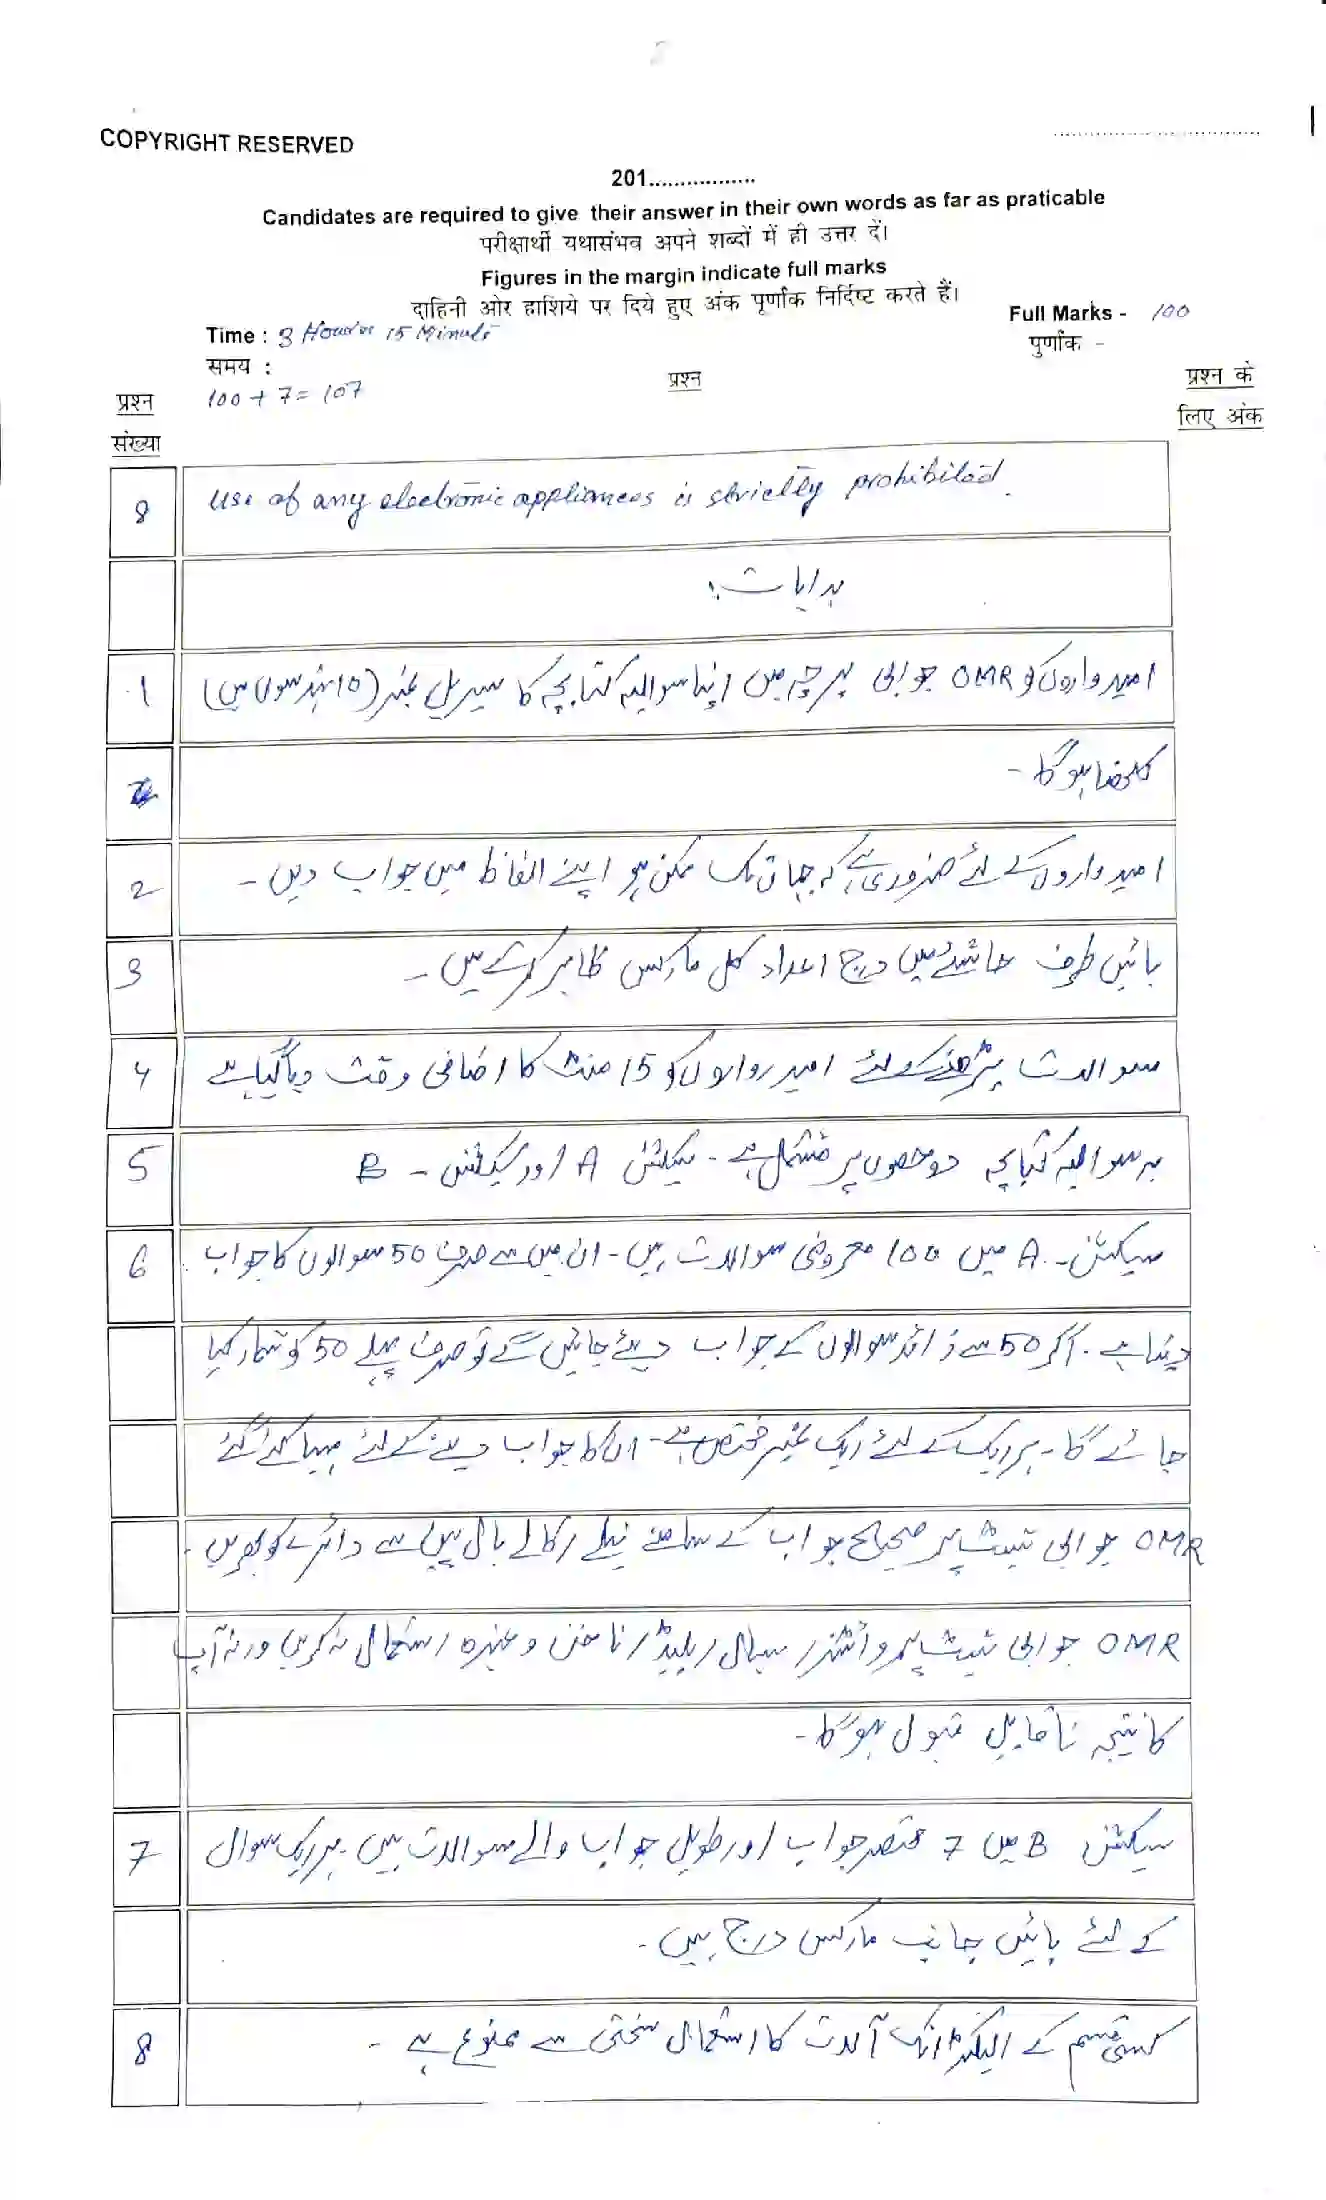 COPYRIGHT RESERVED
201.................
Candidates are required to give their answer in their own words as far as praticable
परीक्षार्थी यथासंभव अपने शब्दों में ही उत्तर दें।
Figures in the margin indicate full marks
दाहिनी ओर हाशिये पर दिये हुए अंक पूर्णांक निर्दिष्ट करते हैं।
Time : 3 Hours 15 Minuts
Full Marks - 100
समय :
पुर्णांक -
100 + 7 = 107
प्रश्न
प्रश्न के
लिए अंक
प्रश्न
संख्या
8 Use of any electronic appliances is strictly prohibited.
ہدایات:
1 امیدواروں کو OMR جوابی پرچہ میں اپنا سوالیہ کتابچہ کا سیریل نمبر (10 ہندسوں میں)
لکھنا ہوگا -
2 امیدواروں کے لئے ضروری ہے کہ جہاں تک ممکن ہو اپنے الفاظ میں جواب دیں -
3 بائیں طرف حاشئے میں درج اعداد کل مارکس ظاہر کرتے ہیں -
4 سوالات پڑھنے کے لئے امیدواروں کو 15 منٹ کا اضافی وقت دیا گیا ہے
5 یہ سوالیہ کتابچہ دو حصوں پر مشتمل ہے - سیکشن A اور سیکشن - B
6 سیکشن - A میں 100 معروضی سوالات ہیں - ان میں سے صرف 50 سوالوں کا جواب
دینا ہے - اگر 50 سے زائد سوالوں کے جواب دیئے جائیں گے تو صرف پہلے 50 کو شمار کیا
جائے گا - ہر ایک کے لئے ایک نمبر مختص ہے - ان کا جواب دینے کے لئے مہیا کئے گئے
OMR جوابی شیٹ پر صحیح جواب کے سامنے نیلے / کالے بال پین سے دائرے کو بھریں -
OMR جوابی شیٹ پر وائٹنر / سیال / بلیڈ / ناخن وغیرہ استعمال نہ کریں ورنہ آپ
کا نتیجہ ناقابل قبول ہوگا -
7 سیکشن B میں 7 مختصر جواب اور طویل جواب والے سوالات ہیں - ہر ایک سوال
کے لئے بائیں جانب مارکس درج ہیں -
8 کسی قسم کے الیکٹرانک آلات کا استعمال سختی سے ممنوع ہے -